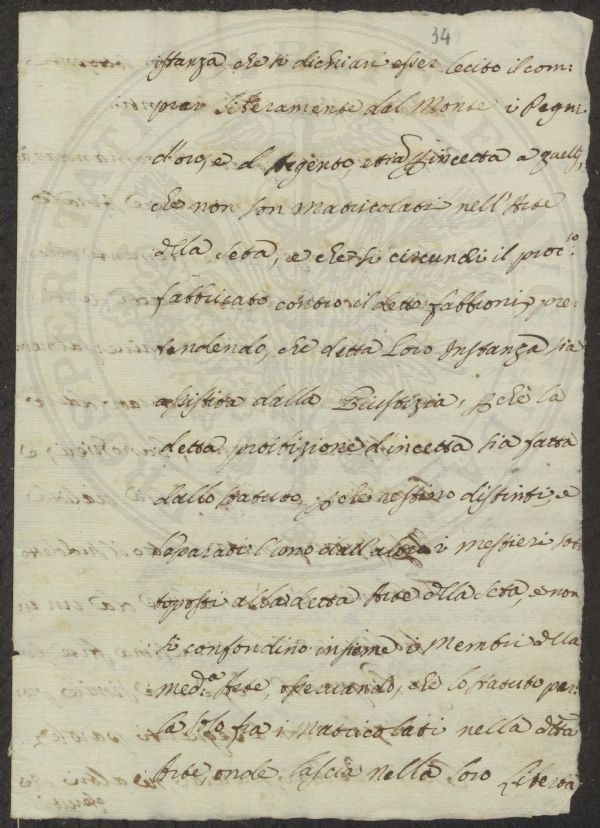 34
istanza, che si dichiari esser lecito il com:
prar liberamente dal Monte i Pegni
d'oro, e d'Argento, etia p incetta a quelli,
che non son Matricolati nell'Arte
dlla Seta, e che si circundi il proc:so
fabbricato contro il detto Fabbroni, pre:
tendendo, che detta loro Instanza sia
assistita dalla Giustizia, pche la
detta proibizione d'incetta sia fatta
dallo statuto, pche restino distinti, e
separati l'uno dall'altro i mestieri sot:
toposti alla detta Arte dlla Seta, e non
si confondino insieme i Membri dlla
med:a Arte, osservando, che lo statuto par:
la solo fra i Matricolati nella dtta
Arte, onde lascia nella loro libertà